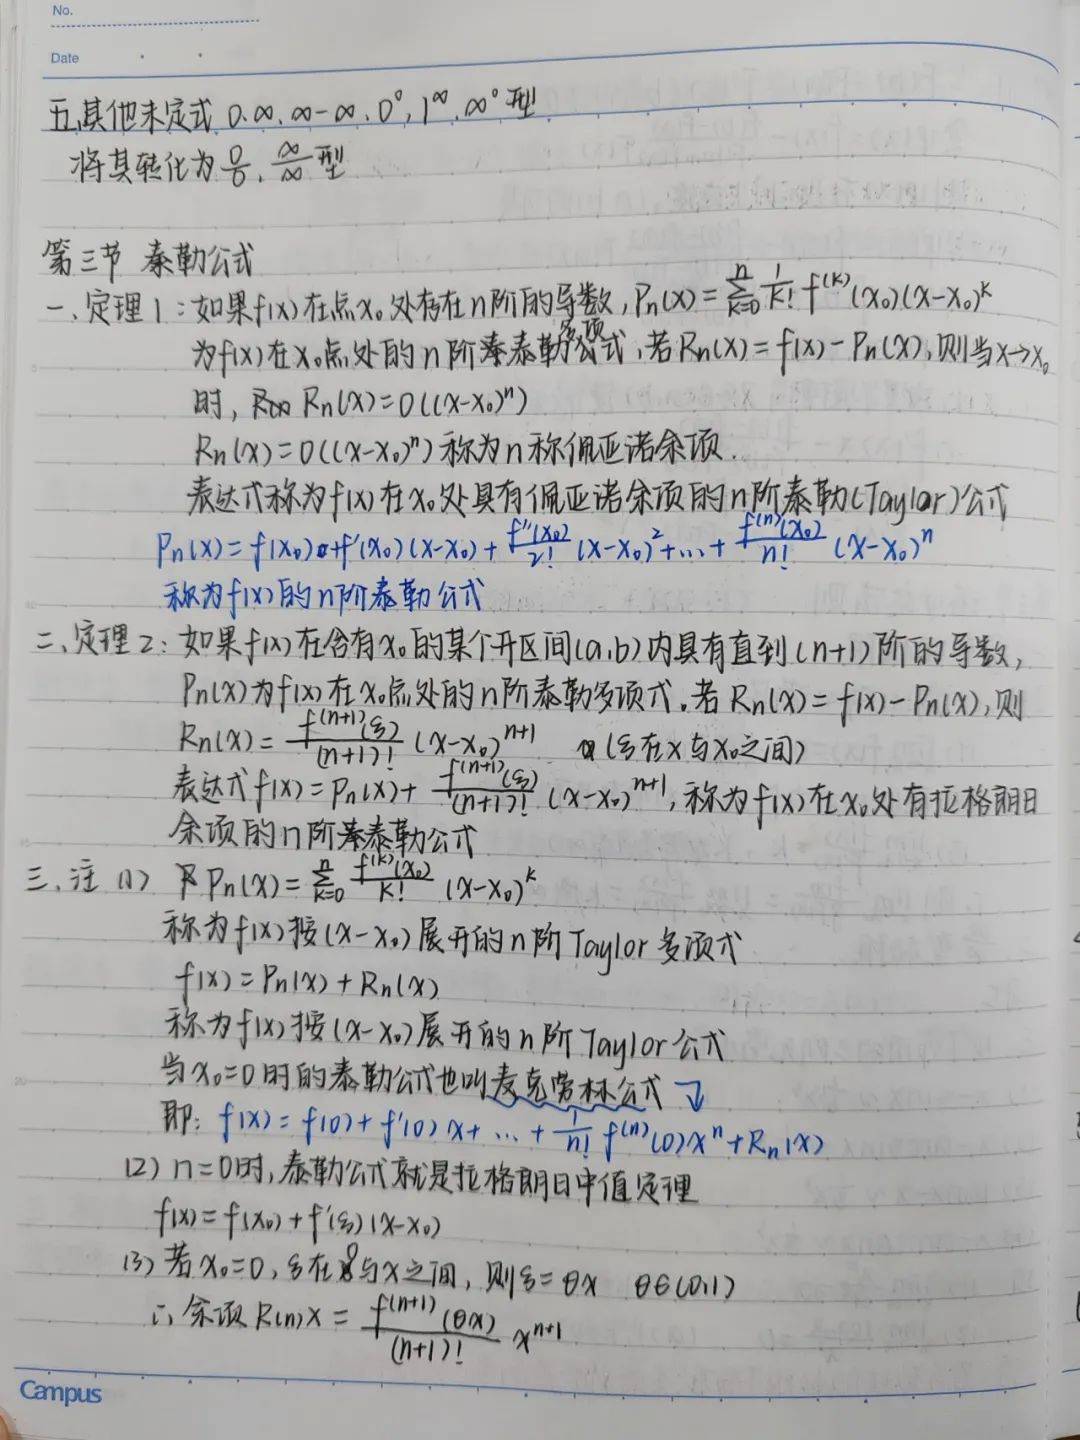 No.
Date
五、其他未定式 0·∞, ∞-∞, 0⁰, 1^∞, ∞⁰ 型
将其转化为 0/0, ∞/∞ 型
第三节 泰勒公式
一、定理1:如果f(x)在点x₀处存在n阶的导数, Pn(x)=∑_{k=0}^{n} 1/k! f^(k)(x₀)(x-x₀)^k
为f(x)在x₀点处的n阶泰勒多项式,若Rn(x)=f(x)-Pn(x),则当x→x₀
时, Rn(x)=0((x-x₀)^n)
Rn(x)=0((x-x₀)^n)称为n称佩亚诺余项.
表达式称为f(x)在x₀处具有佩亚诺余项的n阶泰勒(Taylor)公式
Pn(x)=f(x₀)+f'(x₀)(x-x₀)+f''(x₀)/2! (x-x₀)²+...+f^(n)(x₀)/n! (x-x₀)^n
称为f(x)的n阶泰勒公式
二、定理2:如果f(x)在含有x₀的某个开区间(a,b)内具有直到(n+1)阶的导数,
Pn(x)为f(x)在x₀点处的n阶泰勒多项式.若Rn(x)=f(x)-Pn(x),则
Rn(x)=f^(n+1)(ξ)/(n+1)! (x-x₀)^{n+1} (ξ在x与x₀之间)
表达式f(x)=Pn(x)+f^(n+1)(ξ)/(n+1)! (x-x₀)^{n+1},称为f(x)在x₀处有拉格朗日
余项的n阶泰勒公式
三、注(1) Pn(x)=∑_{k=0}^{n} f^(k)(x₀)/k! (x-x₀)^k
称为f(x)按(x-x₀)展开的n阶Taylor多项式
f(x)=Pn(x)+Rn(x)
称为f(x)按(x-x₀)展开的n阶Taylor公式
当x₀=0时的泰勒公式也叫麦克劳林公式
即: f(x)=f(0)+f'(0)x+...+1/n! f^(n)(0)x^n+Rn(x)
(2) n=0时,泰勒公式就是拉格朗日中值定理
f(x)=f(x₀)+f'(ξ)(x-x₀)
(3) 若x₀=0, ξ在0与x之间,则ξ=θx θ∈(0,1)
∴余项R(n)x=f^(n+1)(θx)/(n+1)! x^{n+1}
Campus